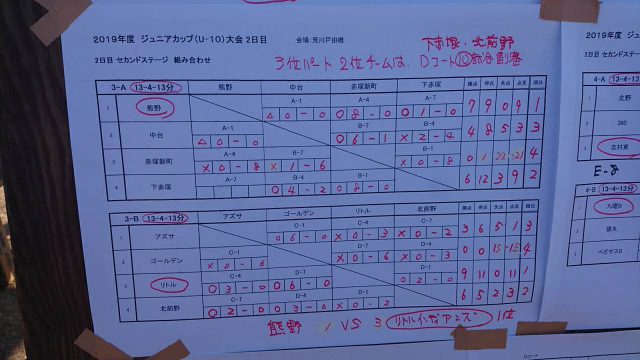 2019年度 ジュニアカップ(U-10)大会 2日目 会場:荒川戸田橋
下赤塚・北前野
2日目 セカンドステージ 組み合わせ
3位パート 2位チームは、Dコート⑩試合副審
3-A 13-4-13分 熊野 中台 赤塚新町 下赤塚 勝点 得点 失点 点差 順位
A-1 A-4 A-7
1 熊野 △0-0 ○8-0 ○1-0 7 9 0 9 1
A-1 B-7 B-4
2 中台 △0-0 ○6-1 ×2-4 4 8 5 3 3
A-4 B-7 B-1
3 赤塚新町 ×0-8 ×1-6 ×0-8 0 1 22 -21 4
A-7 B-4 B-1
4 下赤塚 ○4-2 ○8-0 6 12 3 9 2
3-B 13-4-13分 アズサ ゴールデン リトル 北前野 勝点 得点 失点 点差 順位
C-1 C-4 C-7
1 アズサ ○6-0 ×0-3 ×0-2 3 6 5 1 3
C-1 D-7 D-4
2 ゴールデン ×0-6 ×0-6 ×0-3 0 0 15 -15 4
C-4 D-7 D-1
3 リトル ○3-0 ○6-0 ○2-0 9 11 0 11 1
C-7 D-4 D-1
4 北前野 ○2-0 ○3-0 ×0-2 6 5 2 3 2
熊野 1 VS 3 リトルインディアンズ 1位
4-A
1 北野
2 360
3 志村東
E-8
4-B 13-4-13分
1 九曜B
2 徳丸
3 ペガサスG